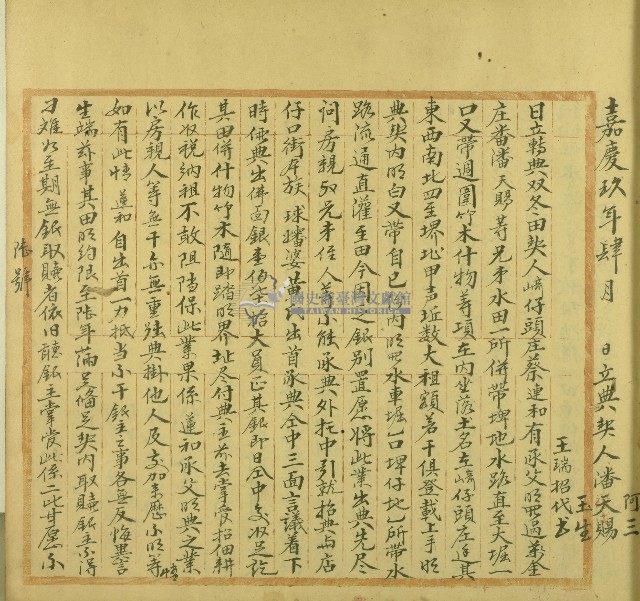 嘉慶玖年肆月 日立典契人潘天賜
阿三
玉生
王瑞招代書
日立轉典双冬田契人崎仔頭庄蔡連和有承父明典過萬金
庄番潘天賜等兄弟水田一所併帶埤地水路直至大堀一
口又帶週圍竹木什物等項在內坐落土名在崎仔頭庄近其
東西南北四至堺址甲声坵数大祖額若干俱登載上手明
典契內明白又帶自己份內明典水車堀乙口埤仔地乙所帶水
路流通直灌至田今因 銀別置愿將此業出典先尽
詞房親叔兄弟侄人等不能承典外托中引就招典与店
仔口街本族 球嬸婆黃氏出首承典仝中三面言議着下
時值典出佛面銀壹佰柒拾大員正其銀即日仝中交收足訖
其田併什物竹木隨即踏明界址尽付典主前去掌管招佃耕
作收稅納租不敢阻擋保此業果係 連和承父明典之業
以房親人等無干亦無重張典掛他人及交加來歷不明等情
如有此情 連和自出首一力抵当不干銀主之事各無反悔異言
生端茲事其田明約限至陸年滿足備足契內取贖銀主不得
刁難如至期無銀取贖者依旧聽銀主掌管此係二比甘愿亦
陸號
國史館臺灣文獻館
TAIWAN HISTORICA